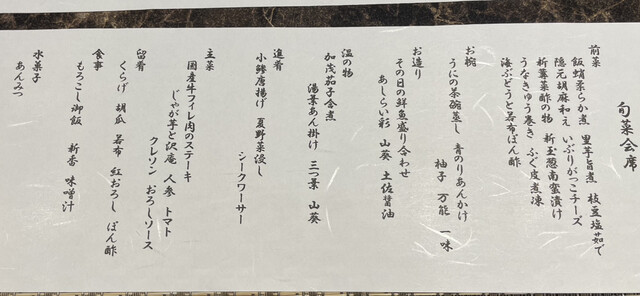 旬菜会席
前菜
飯蛸柔らか煮 里芋旨煮 枝豆塩茹で
隠元胡麻和え いぶりがっこチーズ
新蓴菜酢の物 新玉葱南蛮漬け
うなきゅう巻き ふぐ皮煮凍
海ぶどうと若布ぽん酢
お椀
うにの茶碗蒸し 青のりあんかけ
柚子 万能 一味
お造り
その日の鮮魚盛り合わせ
あしらい彩 山葵 土佐醤油
温の物
加茂茄子含煮
湯葉あん掛け 三つ葉 山葵
進肴
小鯵唐揚げ 夏野菜浸し
シークワーサー
主菜
国産牛フィレ肉のステーキ
じゃが芋と沢庵 人参 トマト
クレソン おろしソース
留肴
くらげ 胡瓜 若布 紅おろし ぽん酢
食事
もろこし御飯 新香 味噌汁
水菓子
あんみつ